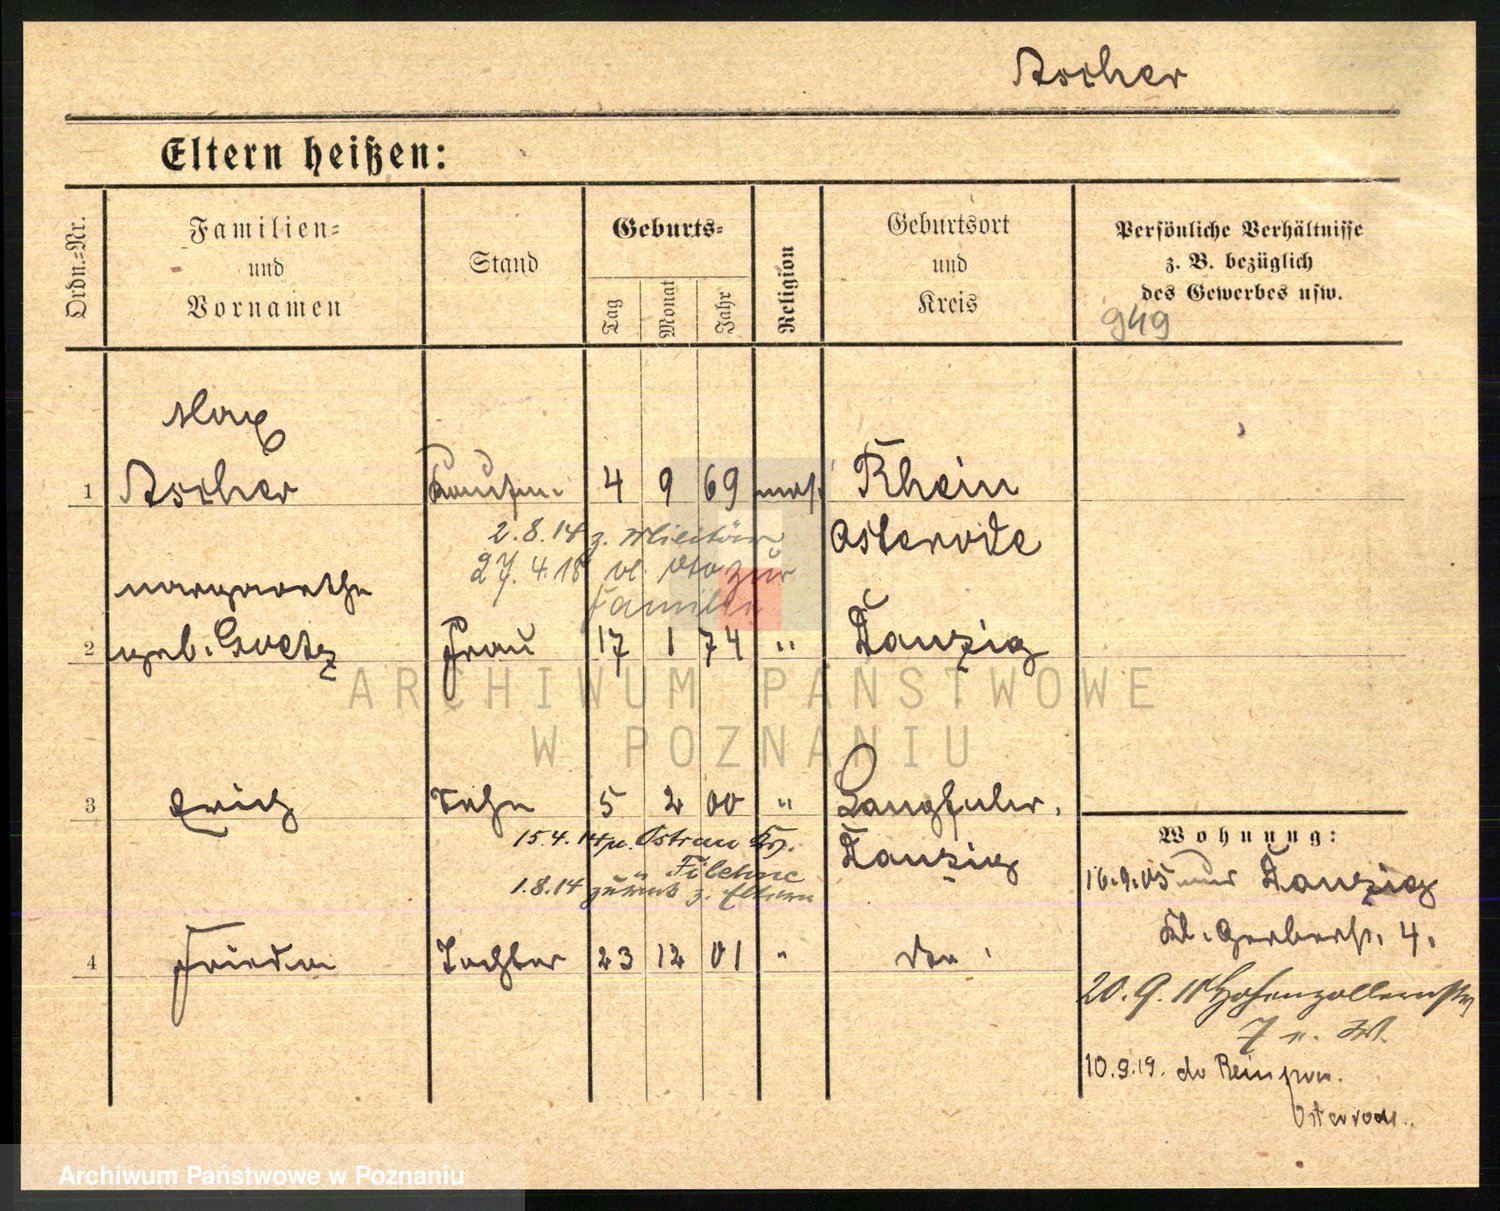 Ascher
Eltern heißen:
Ordn.-Nr.
Familien-
und
Vornamen
Stand
Geburts-
Tag
Monat
Jahr
Religion
Geburtsort
und
Kreis
Persönliche Verhältnisse
z. B. bezüglich
des Gewerbes usw.
949
Max
1 Ascher Kaufm. 4 9 69 mos. Rhein
Osterode
2.8.14 z. Militär
27.4.18 zur
Familie
Margarethe
2 geb. Goetz Frau 17 1 74 " Danzig
3 Erich Sohn 5 2 00 " Langfuhr.
Danzig
15.4.14 n. Ostrau Krs.
Filehne
1.8.14 zurück z. Eltern
4 Frieda Tochter 23 12 01 " do
Wohnung:
16.9.05 von Danzig
Kl. Gerberstr. 4.
20.9. Hohenzollernstr
7
10.9.19. do
Osterode.
ARCHIWUM PAŃSTWOWE
W POZNANIU
Archiwum Państwowe w Poznaniu